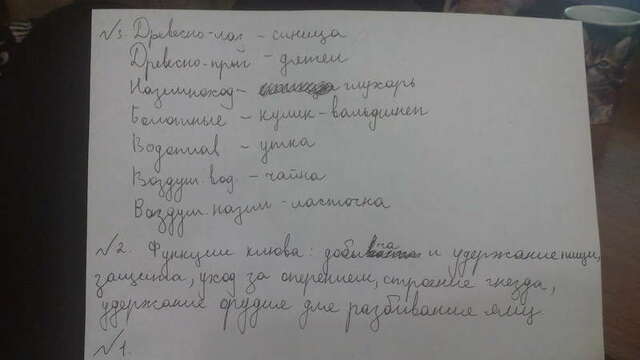 №3. Древесно-лаз - синица
Древесно-прыг - дятел
Назмноход - глухарь
Болотные - кулик-вальдшнеп
Водоплав - утка
Воздуш. вод. - чайка
Воздуш. назем - ласточка
№2. Функции клюва: добыча и удержание пищи,
защита, уход за оперением, строение гнезда,
удержание орудие для разбивания яиц
№1.